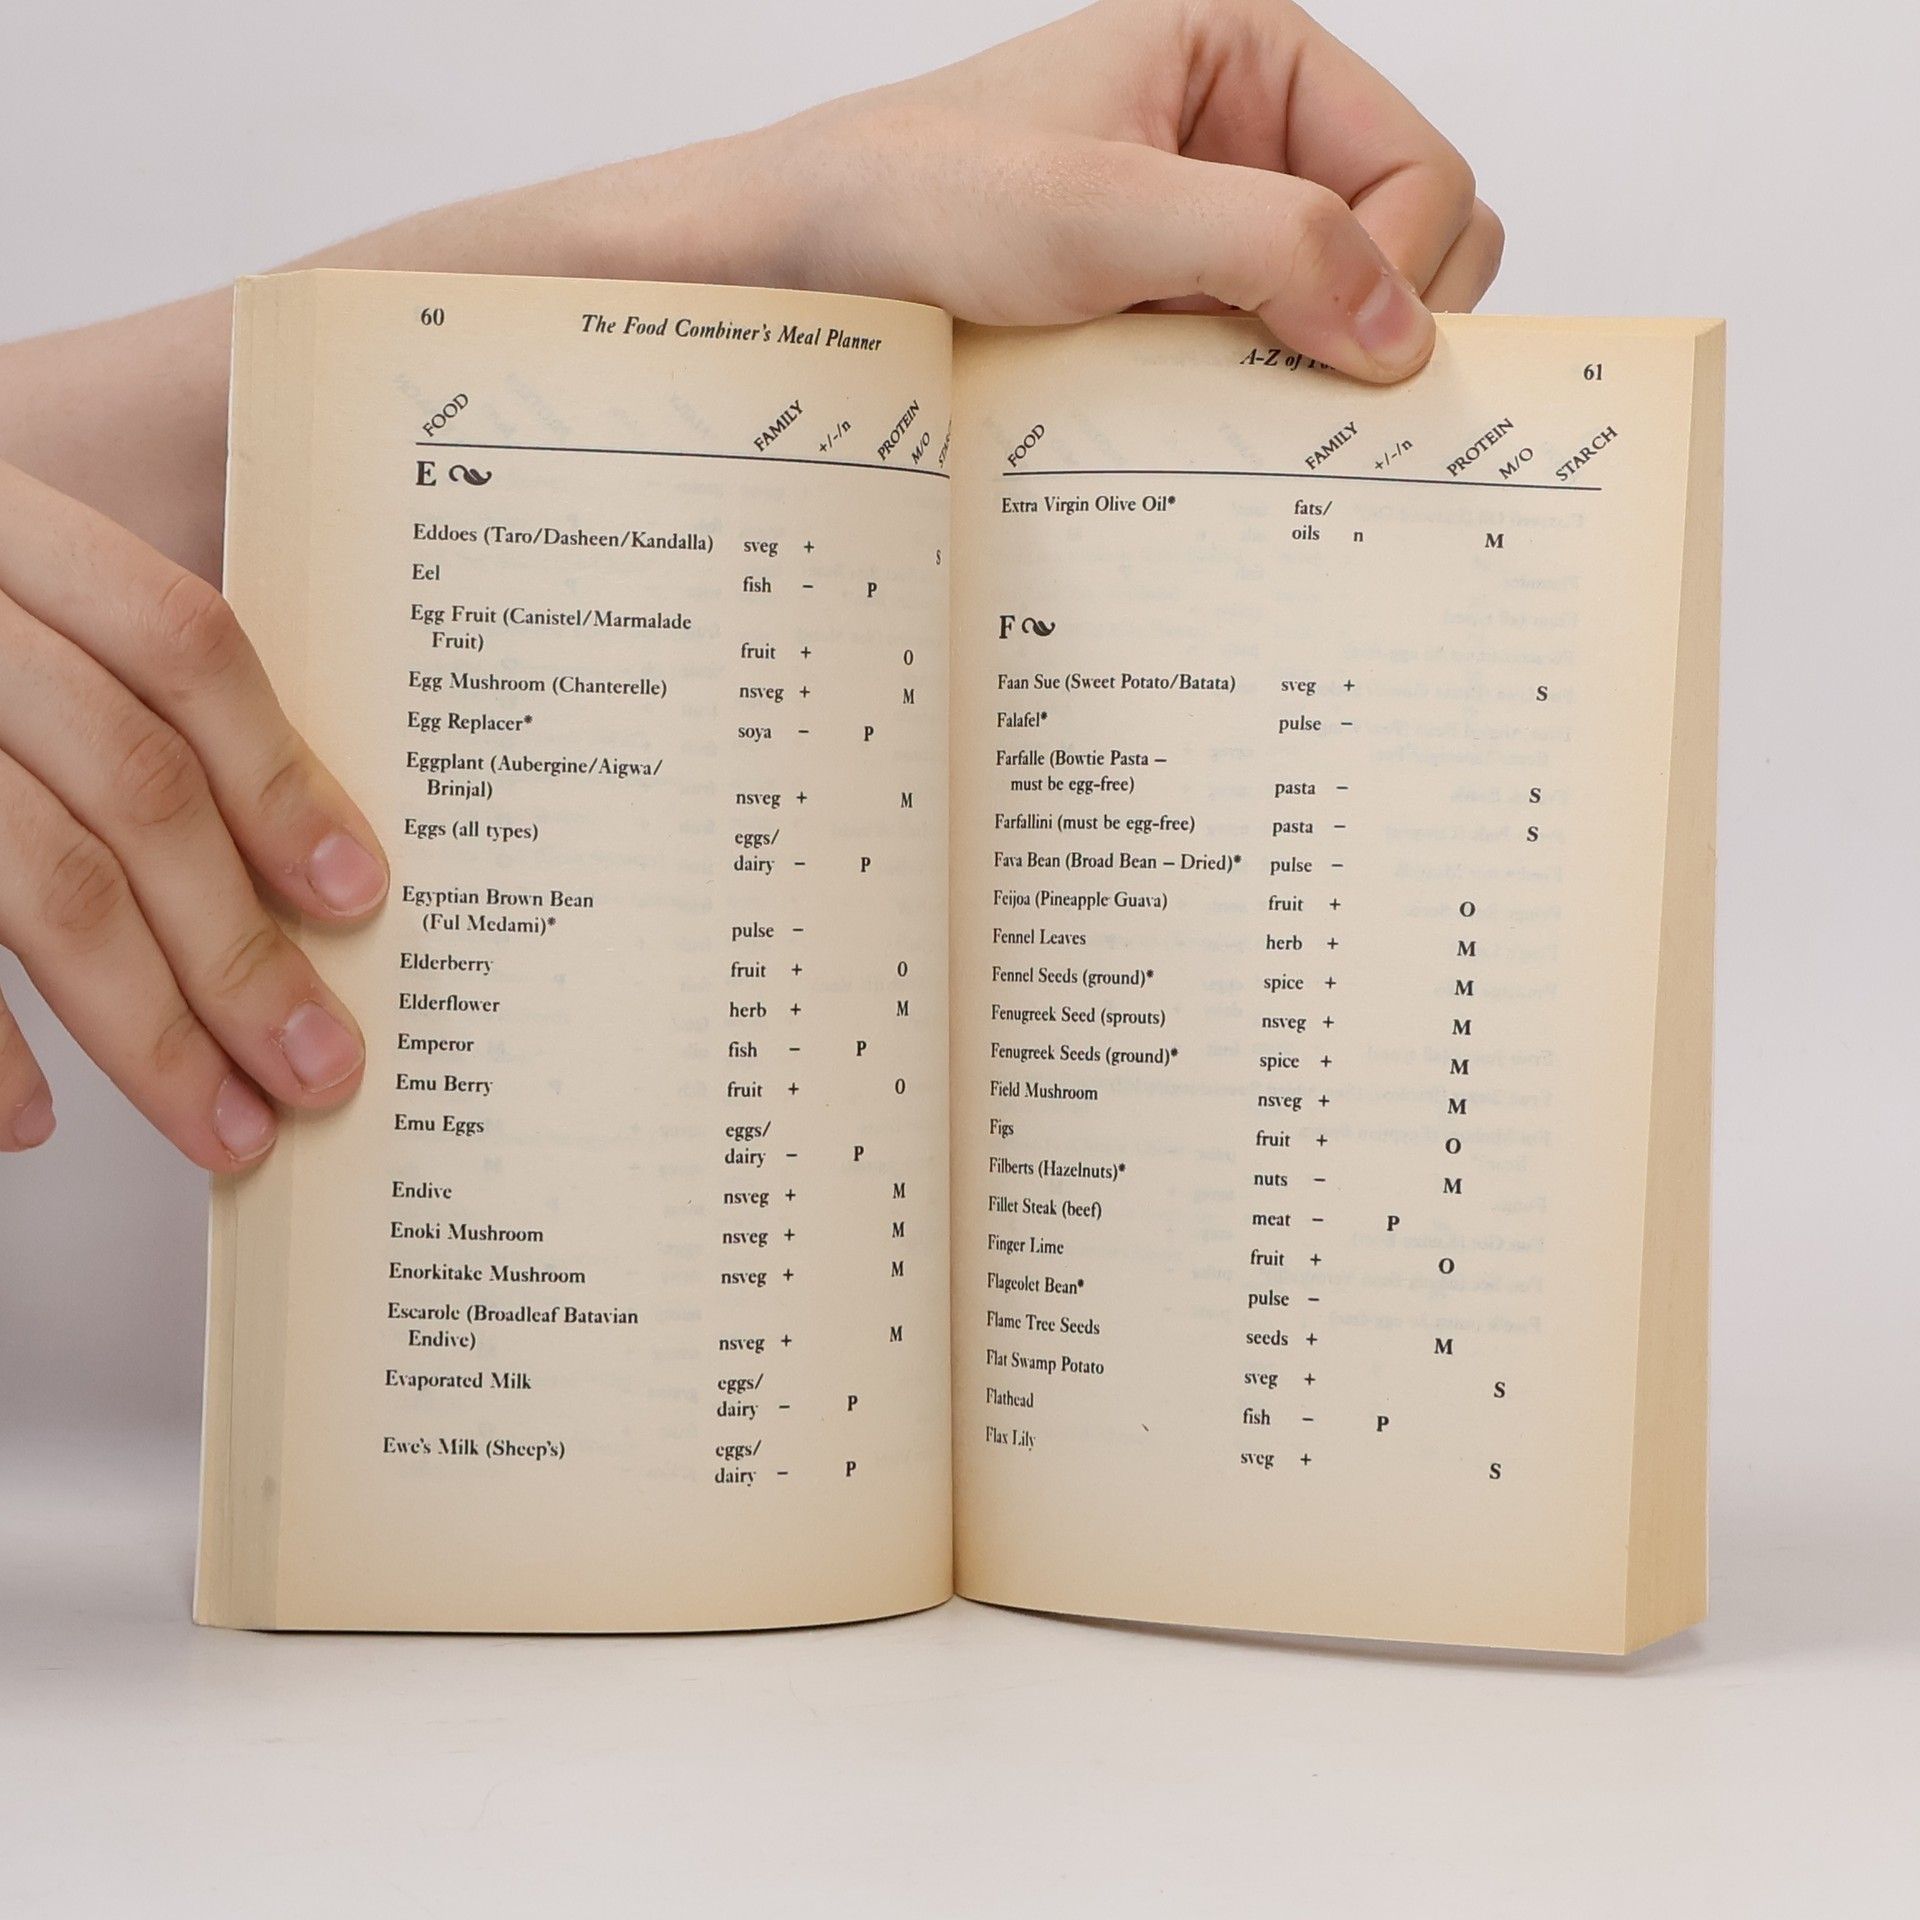 60
The Food Combiner's Meal Planner
FOOD FAMILY +/-/n PROTEIN M/O
E
Eddoes (Taro/Dasheen/Kandalla) sveg + S
Eel fish – P
Egg Fruit (Canistel/Marmalade
Fruit) fruit + O
Egg Mushroom (Chanterelle) nsveg + M
Egg Replacer* soya – P
Eggplant (Aubergine/Aigwa/
Brinjal) nsveg + M
Eggs (all types) eggs/
dairy – P
Egyptian Brown Bean
(Ful Medami)* pulse –
Elderberry fruit + O
Elderflower herb + M
Emperor fish – P
Emu Berry fruit + O
Emu Eggs eggs/
dairy – P
Endive nsveg + M
Enoki Mushroom nsveg + M
Enorkitake Mushroom nsveg + M
Escarole (Broadleaf Batavian
Endive) nsveg + M
Evaporated Milk eggs/
dairy – P
Ewe's Milk (Sheep's) eggs/
dairy – P
A-Z of
61
FOOD FAMILY +/-/n PROTEIN M/O STARCH
Extra Virgin Olive Oil* fats/
oils n M
F
Faan Sue (Sweet Potato/Batata) sveg + S
Falafel* pulse –
Farfalle (Bowtie Pasta –
must be egg-free) pasta – S
Farfallini (must be egg-free) pasta – S
Fava Bean (Broad Bean – Dried)* pulse –
Feijoa (Pineapple Guava) fruit + O
Fennel Leaves herb + M
Fennel Seeds (ground)* spice + M
Fenugreek Seed (sprouts) nsveg + M
Fenugreek Seeds (ground)* spice + M
Field Mushroom nsveg + M
Figs fruit + O
Filberts (Hazelnuts)* nuts – M
Fillet Steak (beef) meat – P
Finger Lime fruit + O
Flageolet Bean* pulse –
Flame Tree Seeds seeds + M
Flat Swamp Potato sveg + S
Flathead fish – P
Flax Lily sveg + S